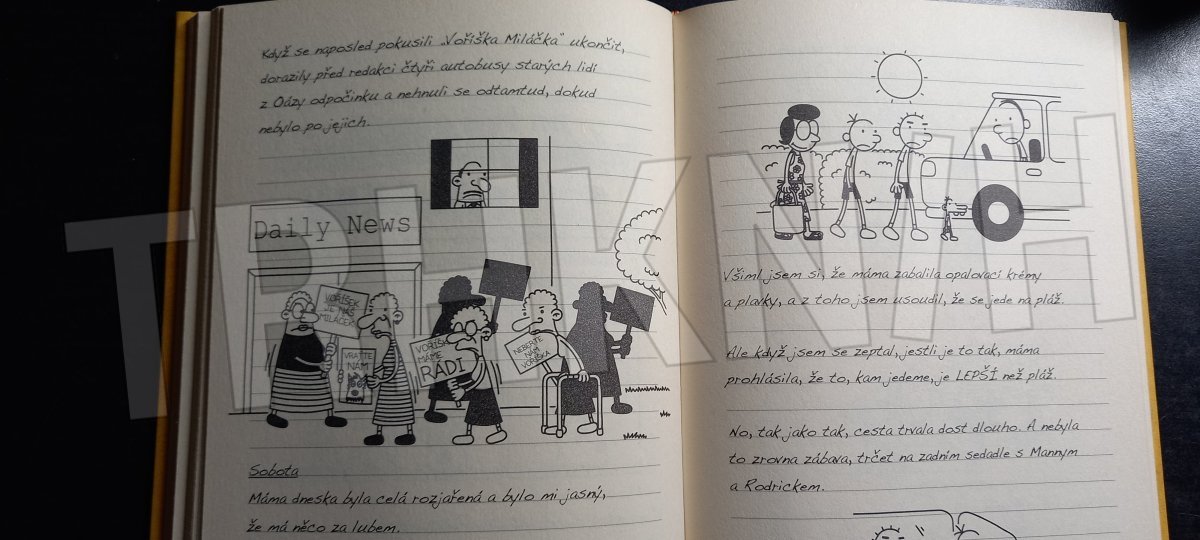 Když se naposled pokusili „Voříška Miláčka“ ukončit,
dorazily před redakci čtyři autobusy starých lidí
z Oázy odpočinku a nehnuli se odtamtud, dokud
nebylo po jejich.
Daily News
VOŘÍŠEK
JE NÁŠ
MILÁČEK!
VRAŤTE
NÁM
VOŘÍŠKA
MÁME
RÁDI
NEBERTE
NÁM
VOŘÍŠKA
Sobota
Máma dneska byla celá rozjařená a bylo mi jasný,
že má něco za lubem.
Všiml jsem si, že máma zabalila opalovací krémy
a plavky, a z toho jsem usoudil, že se jede na pláž.
Ale když jsem se zeptal, jestli je to tak, máma
prohlásila, že to, kam jedeme, je LEPŠÍ než pláž.
No, tak jako tak, cesta trvala dost dlouho. A nebyla
to zrovna zábava, trčet na zadním sedadle s Mannym
a Rodrickem.